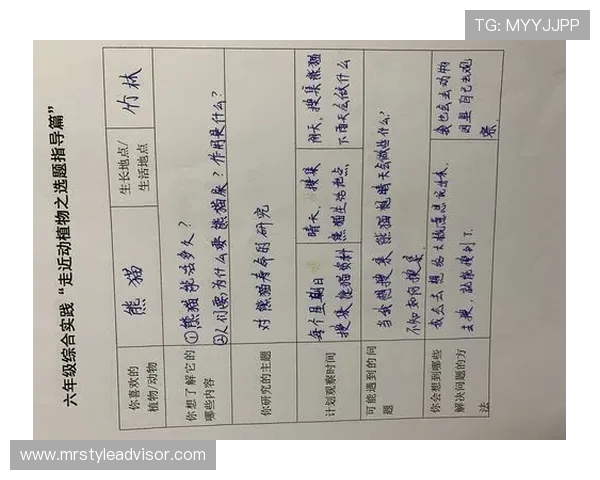 TG: MYYJJPP
六年级综合实践“走近动植物之选题指导篇”
你喜欢的
植物/动物
熊猫
生长地点/
生活地点
竹林
你想了解它的
哪些内容
①熊猫能活多久?
②人们要为什么要熊猫来?作用是什么?
你研究的主题
对熊猫寿命的研究
计划观察时间
每个星期日
搜集熊猫资料
晴天,搜集
熊猫生活地点
阴天,搜集熊猫
下雨天会做什么
可能遇到的问
题
当我想搜集熊猫晴天会做些什么,
不知如何搜集
你会想到哪些
解决问题的方
法
我会去想给大概意思记进来,
去搜,就能搜到了.
我也会去动物
园里自己去观
察.
www.mrstyleadvisor.com